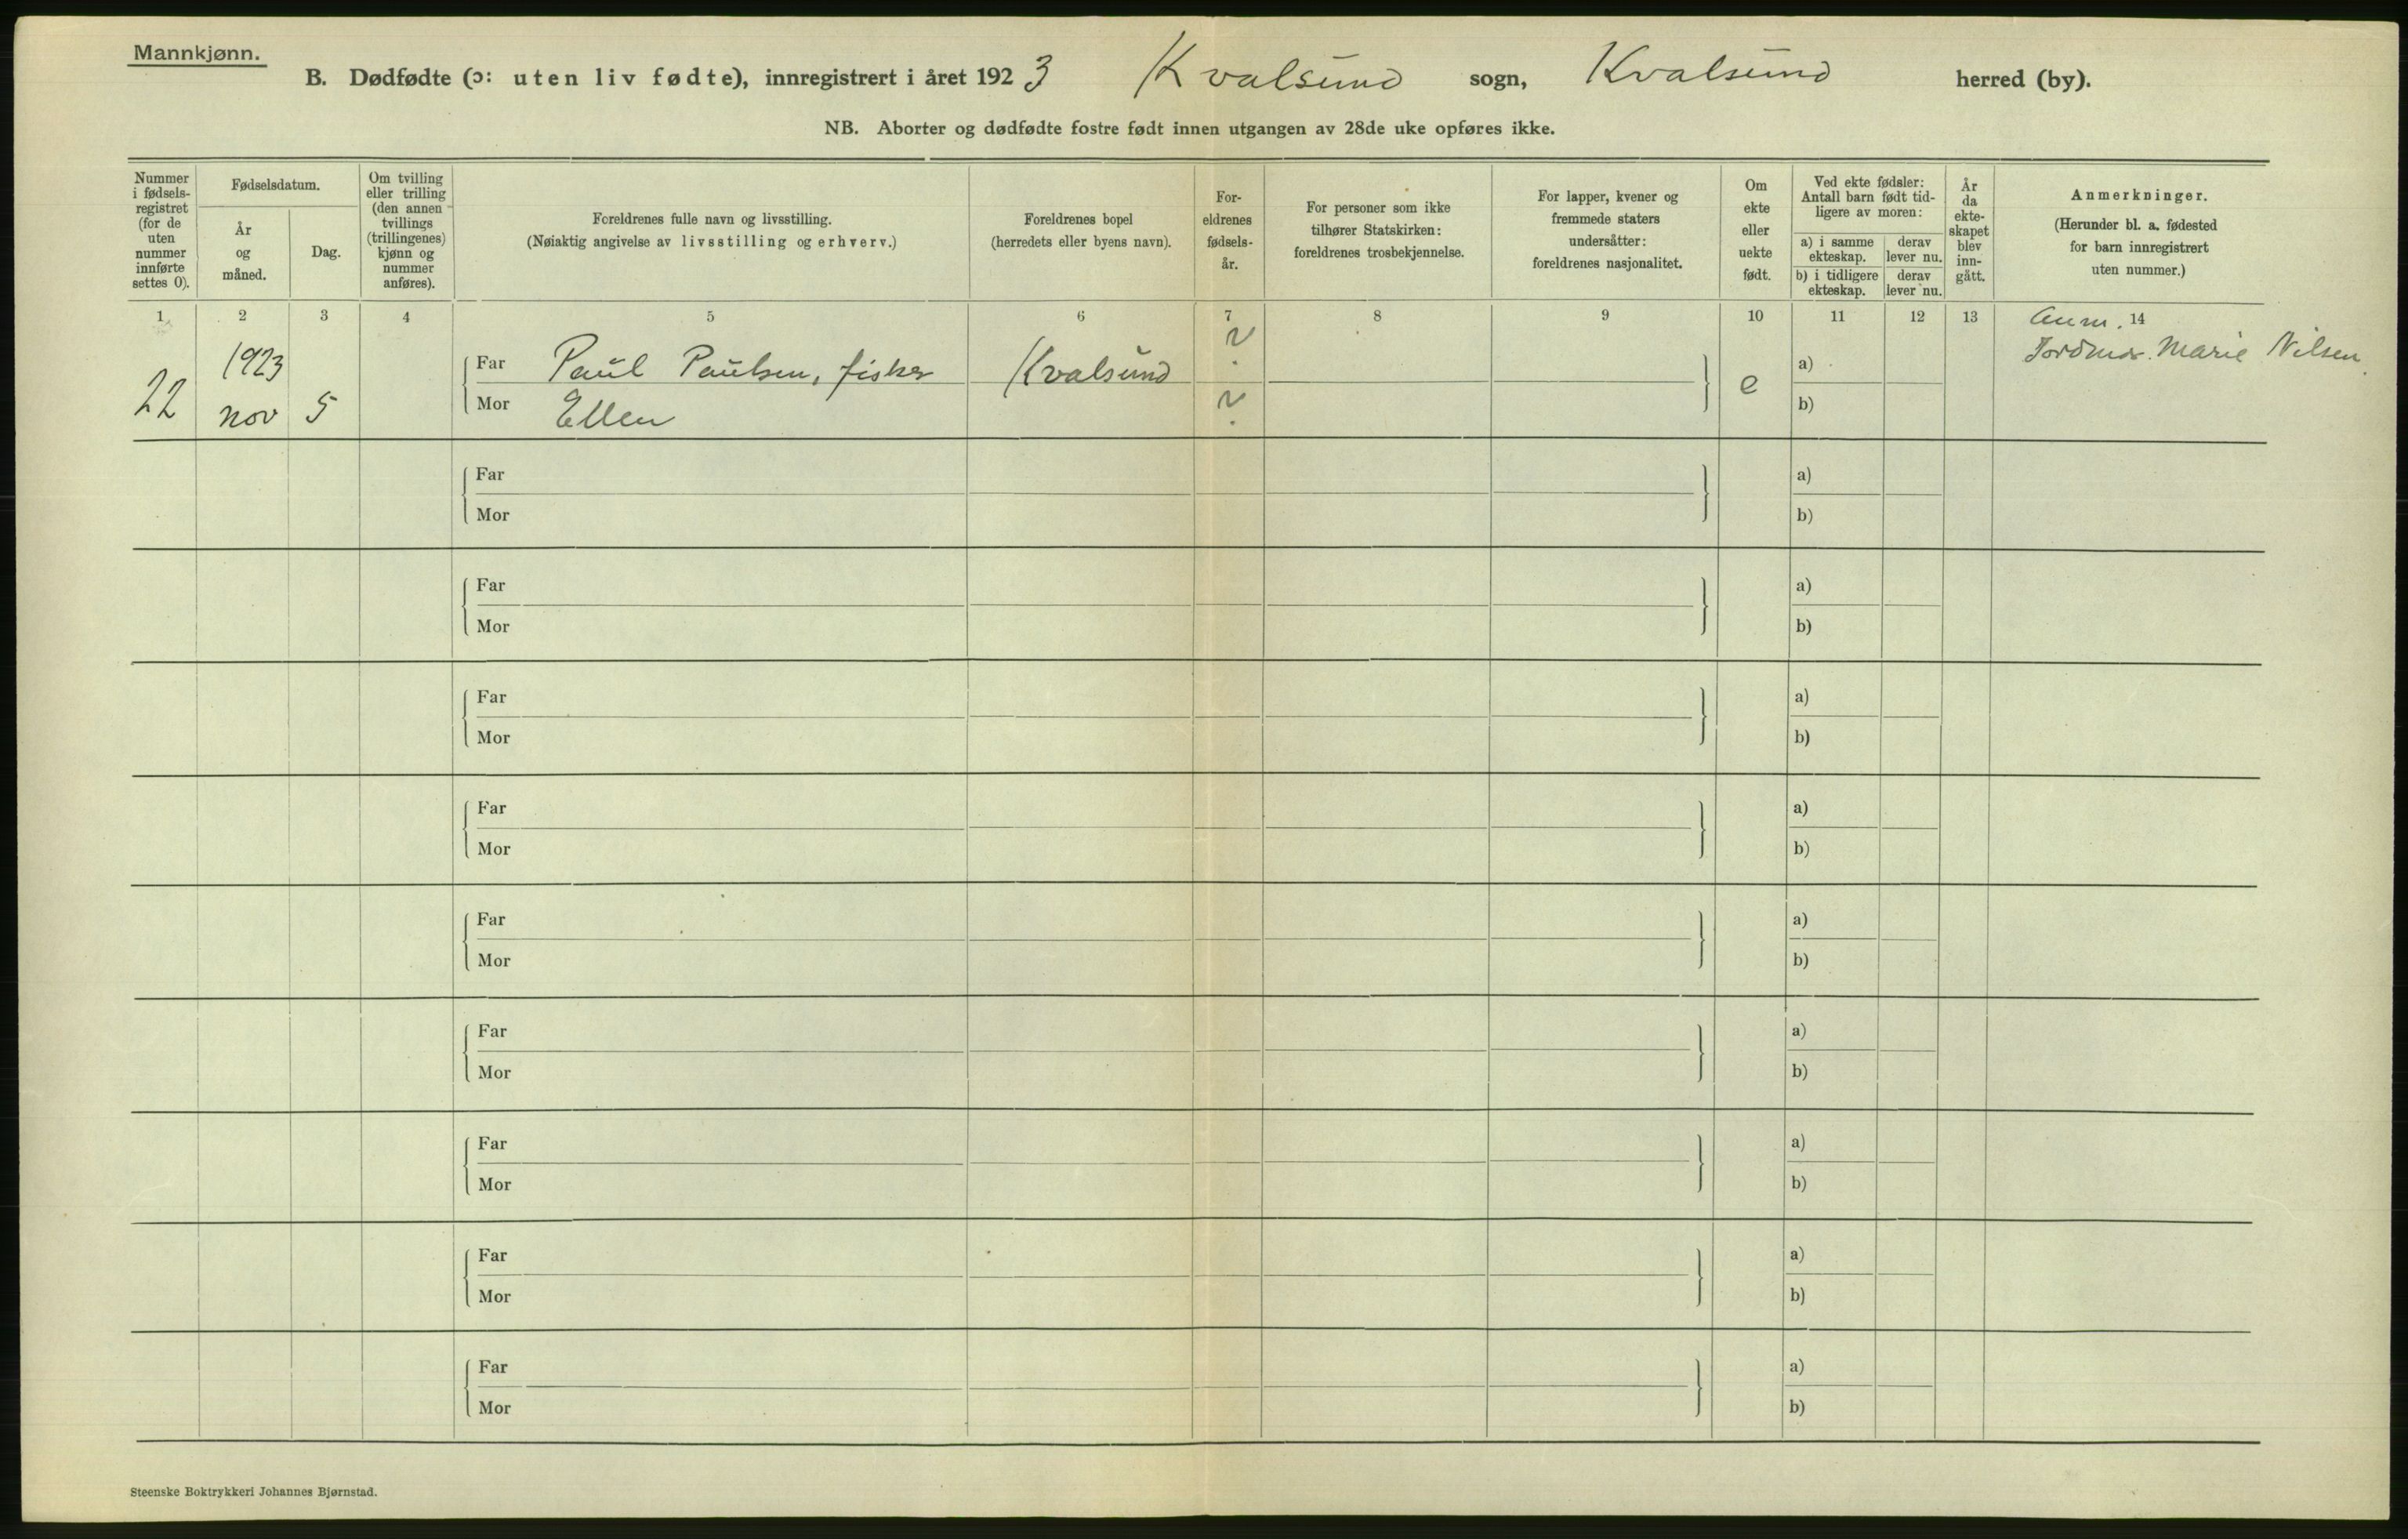 Mannkjønn.
B. Dødfødte (ɔ: uten liv fødte), innregistrert i året 1923 Kvalsund sogn, Kvalsund herred (by).
NB. Aborter og dødfødte fostre født innen utgangen av 28de uke opføres ikke.
Nummer
i fødsels-
registret
(for de
uten
nummer
innførte
settes 0).
Fødselsdatum.
År
og
måned.
Dag.
Om tvilling
eller trilling
(den annen
tvillings
(trillingenes)
kjønn og
nummer
anføres).
Foreldrenes fulle navn og livsstilling.
(Nøiaktig angivelse av livsstilling og erhverv.)
Foreldrenes bopel
(herredets eller byens navn).
For-
eldrenes
fødsels-
år.
For personer som ikke
tilhører Statskirken:
foreldrenes trosbekjennelse.
For lapper, kvener og
fremmede staters
undersåtter:
foreldrenes nasjonalitet.
Om
ekte
eller
uekte
født.
Ved ekte fødsler:
Antall barn født tid-
ligere av moren:
a) i samme
ekteskap.
derav
lever nu.
b) i tidligere
ekteskap.
derav
lever nu.
År
da
ekte-
skapet
blev
inn-
gått.
Anmerkninger.
(Herunder bl. a. fødested
for barn innregistrert
uten nummer.)
1 2 3 4 5 6 7 8 9 10 11 12 13 14
Anm.
Jordmor. Marie Nilsen
22
1923
nov 5
Far Paul Paulsen, fisker Kvalsund ?
Mor Ellen ?
e
a)
b)
Far a)
Mor b)
Far a)
Mor b)
Far a)
Mor b)
Far a)
Mor b)
Far a)
Mor b)
Far a)
Mor b)
Far a)
Mor b)
Far a)
Mor b)
Far a)
Mor b)
Steenske Boktrykkeri Johannes Bjørnstad.